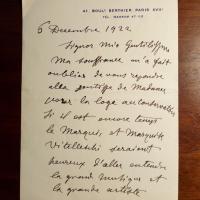 41, BOUL! BERTHIER PARIS XVII!
TÉL. WAGRAM 47-03
6 Decembre 1922
Signor Mio Gentilissimo
Ma souffrance m'a fait
oublier de vous répondre
alla gentile de Madame
pour la loge au Conservatoire
Si il est encore temps
le Marquis, et Marquise
Vitelleschi seraient
heureux d'aller entendre
la grand musique et
la grande artiste